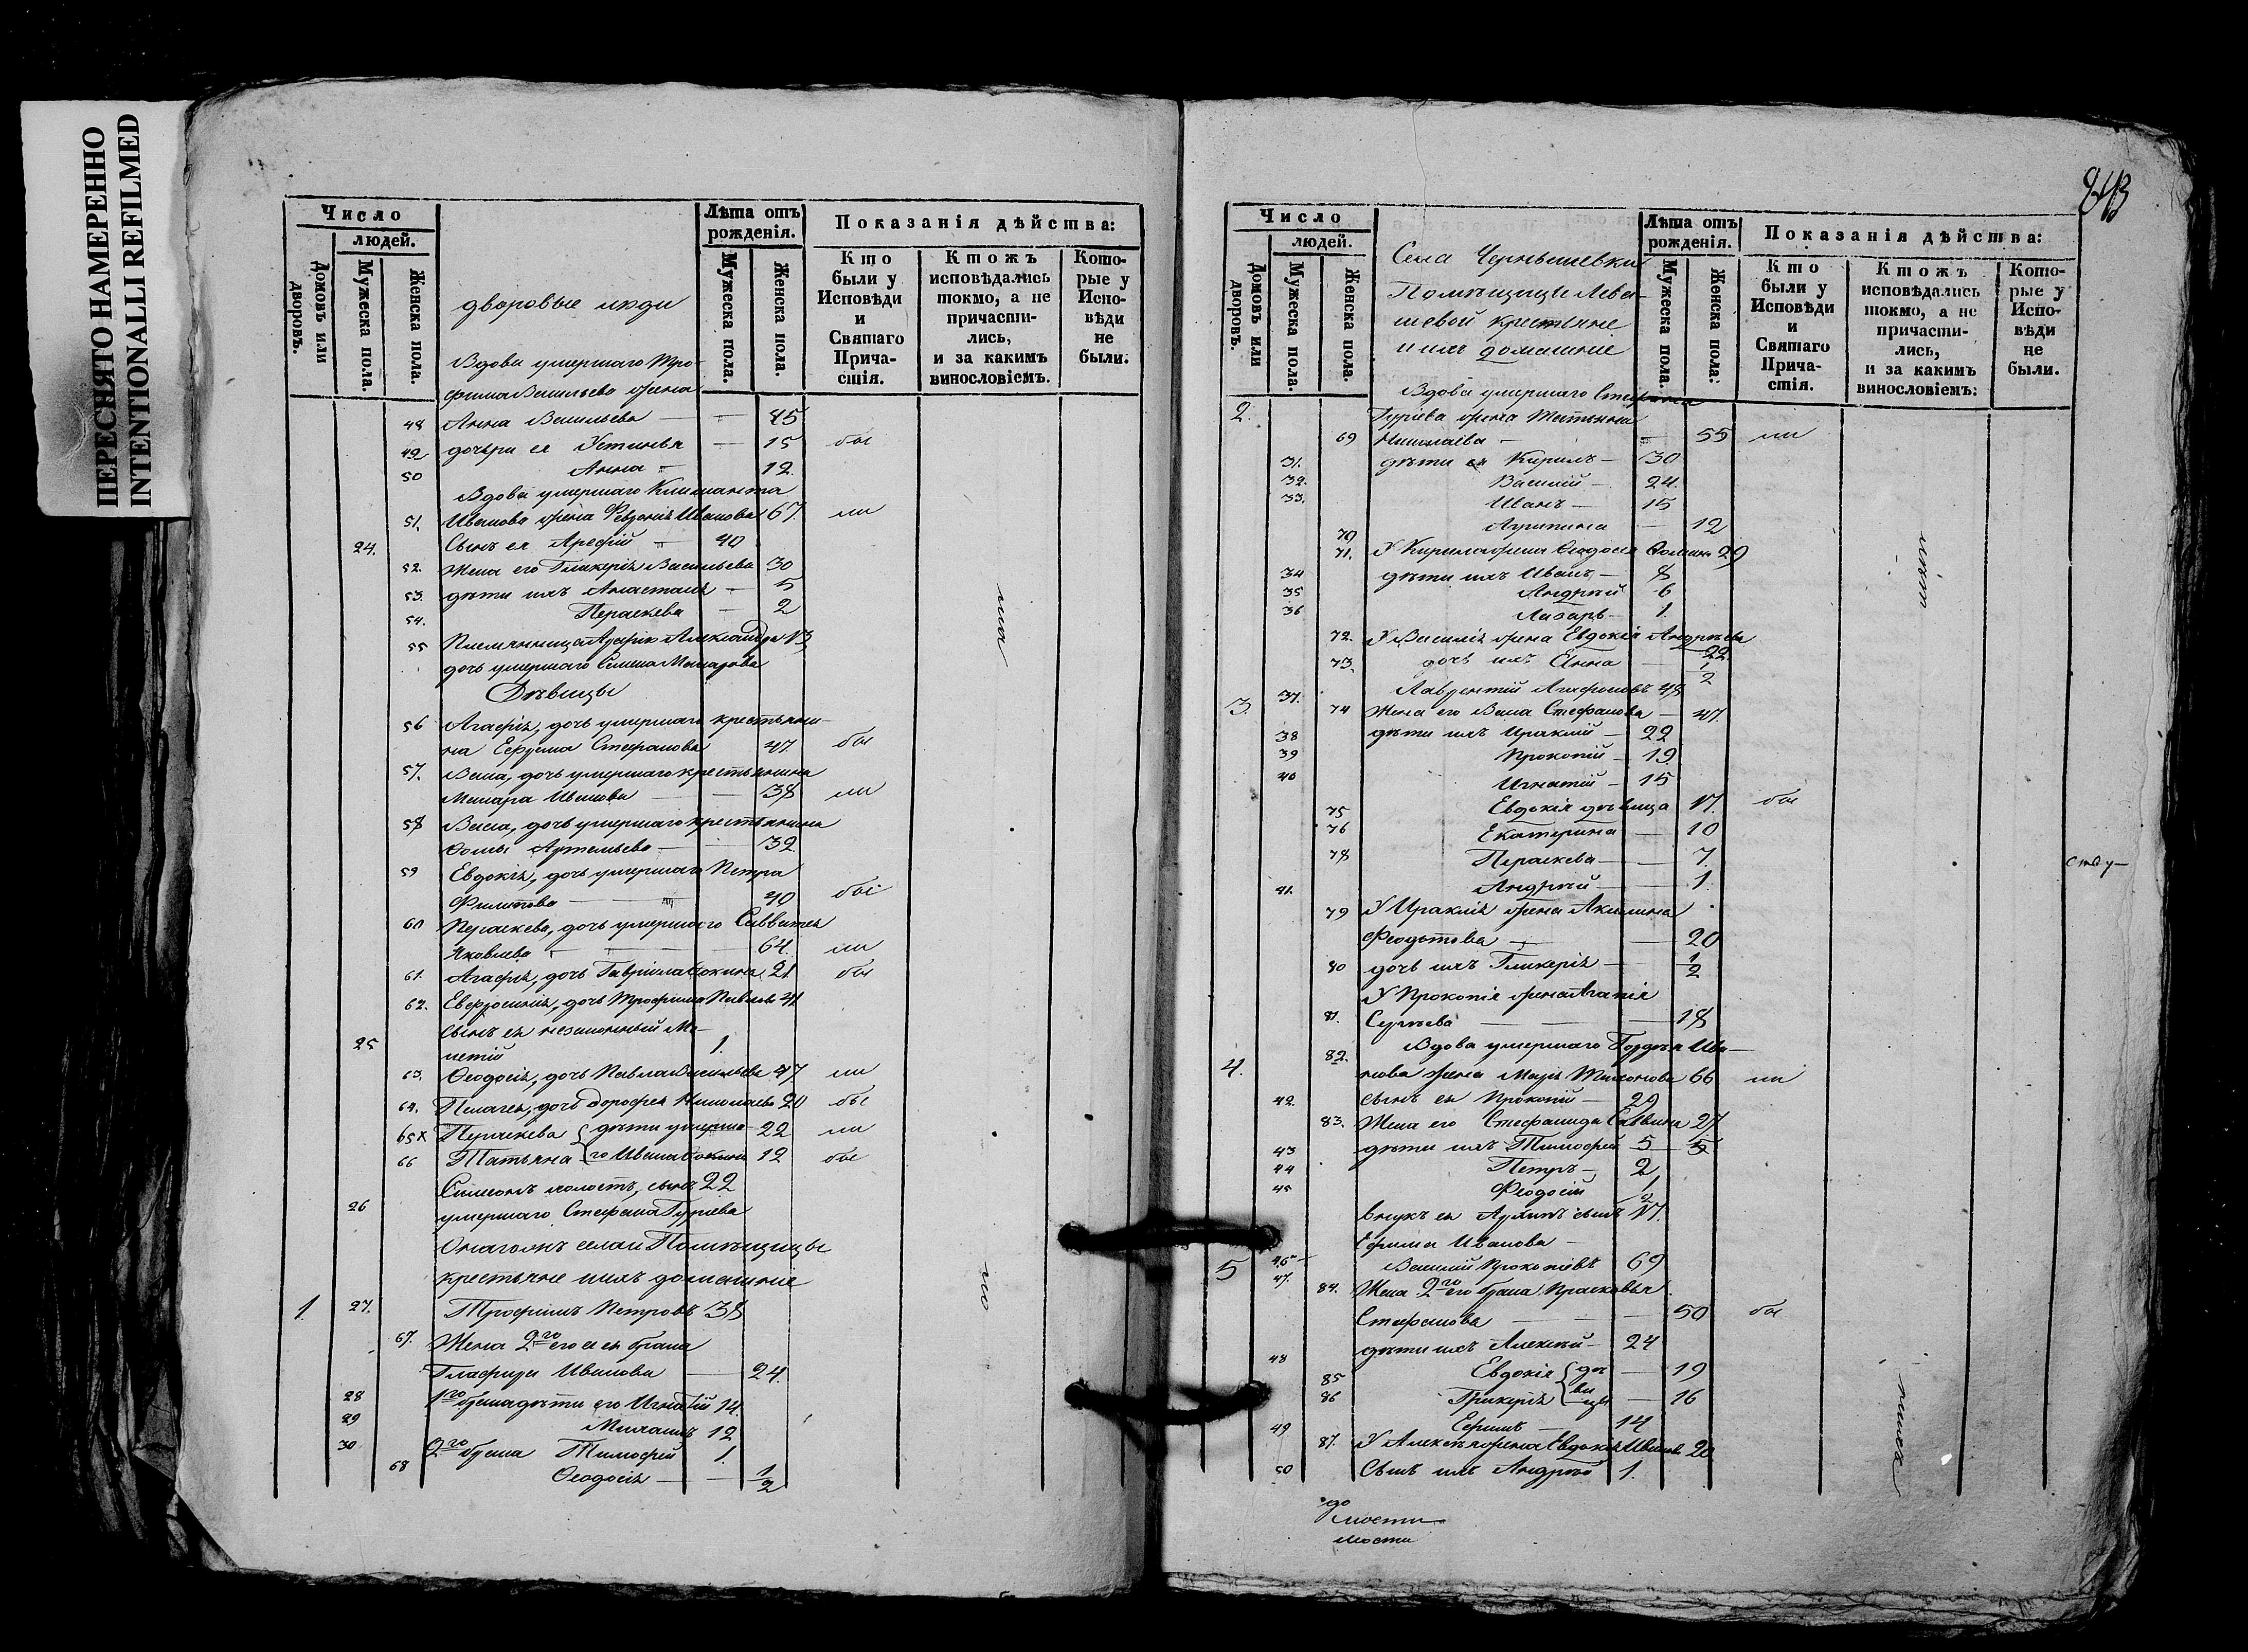 ПЕРЕСНЯТО НАМЕРЕННО
INTENTIONALLI REFILMED
Число
людей.
Домовъ или дворовъ.
Мужеска пола.
Женска пола.
дворовые люди
Лѣта отъ рожденія.
Мужеска пола.
Женска пола.
Показанія дѣйства:
Кто были у Исповѣди и Святаго Прича-стія.
Ктожъ исповѣдались токмо, а не причасти-лись, и за какимъ винословіемъ.
Кото-рые у Испо-вѣди не были.
Вдова умершаго Тро-
фима Васильева жена
48 Анна Васильева — 45
49 дочери ея Устинья — 15 бы
50 Анна — 12
Вдова умершаго
51. Иванова жена Февронія Иванова 67 ли
24. Сынъ ея Арефій — 40
52. Жена его Гликерія Васильева 30
53. дѣти ихъ Анастасія — 5
54. Пераскева — 2
55 Племянница 13
дочь умершаго Макарова
Дѣвицы
56 Агафія, дочь умершаго крестьяни-
на Ефрема Стефанова 47 бы
57. Васса, дочь умершаго крестьянина
Макара Иванова — 38 ли
58 Васса, дочь умершаго крестьянина
Ѳомы Артемьева — 32
59 Евдокія, дочь умершаго Петра
Филипова — 40 бы
60 Пераскева, дочь умершаго Савватея
Яковлева — 64 ли
61. Агафія, дочь Гаврила 21 бы
62. Евфросинія, дочь Трофима Павлова 41
сынъ ея незаконный
25 1.
63. Ѳеодосія, дочь Павла Васильева 47 ли
64. Пелагея, дочь Дорофея Николаева 20 бы
65х Пераскева дѣти умерша- 22 ли
66 Татьяна го Ивана 12 бы
Симеонъ холостъ, сынъ 22
26 умершаго Стефана Гурьева
Онагожъ села и Помѣщицы
крестьяне и ихъ домашніе
1. 27. Трофимъ Петровъ 38
67. Жена 2го его брака
Глафира Иванова — 24.
28 1го брака дѣти его Игнатій 14
29 12
30 2го брака Тимофей 1.
68 Ѳеодосія — 1/2
843
Число
людей.
Домовъ или дворовъ.
Мужеска пола.
Женска пола.
Села Чернышевки
Помѣщицы Лева-
шевой крестьяне
и ихъ домашніе
Лѣта отъ рожденія.
Мужеска пола.
Женска пола:
Показанія дѣйства:
Кто были у Исповѣди и Святаго Прича-стія.
Ктожъ исповѣдались токмо, а не причасти-лись, и за какимъ винословіемъ:
Кото-рые у Испо-вѣди не были.
Вдова умершаго Стефана
2. Гурьева жена Татьяна
69 Николаева — 55 ли
31. дѣти ея Кирилъ — 30
32. Василій — 24.
33. Иванъ — 15
70 Агрипина — 12
71. У Кирила жена Ѳеодосія Ѳомина 29
34 дѣти ихъ Иванъ — 8
35 Андрей 6
36 Лазарь — 1.
72. У Василія жена Евдокія Андреева
22
73. дочь ихъ Анна — 1/2
3. 37. Лаврентій Агафоновъ 48
74 Жена его Васса Стефанова — 47.
38 дѣти ихъ Ираклій — 22
39 Прокопій — 19
40 Игнатій — 15
75 Евдокія дѣвица 17. бы
76 Екатерина — 10
78 Пераскева — 7.
41. Андрей — 1.
79 У Ираклія жена Акилина
Феодотова — 20
80 дочь ихъ Гликерія — 1/2
У Прокопія жена Агапія
81. Сергѣева — 18
4. 82. Вдова умершаго Гордѣя Ива-
нова жена Марія Тихонова 66 ли
42. сынъ ея Прокопій — 29
83. Жена его Стефанида Саввина 27
43 дѣти ихъ Тимофей 5
44 Петръ — 2
45 Феодосій 1/2
внукъ ея Архипъ сынъ 17.
Ефима Иванова —
5 46 Василій Прокопіевъ 69
47.
84. Жена 2го его брака Прасковья
Стефанова — 50 бы
48 дѣти ихъ Алексѣй — 24
85 Евдокія дѣ- 19
86 Гликерія ви-цы — 16
49 Ефимъ — 14
87. У Алексѣя жена Евдокія Иванова 20
50 Сынъ ихъ Андрей 1.